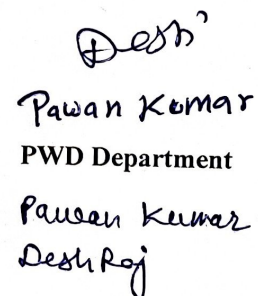 Desh
Pawan Kumar
PWD Department
Pawan Kumar
Desh Raj